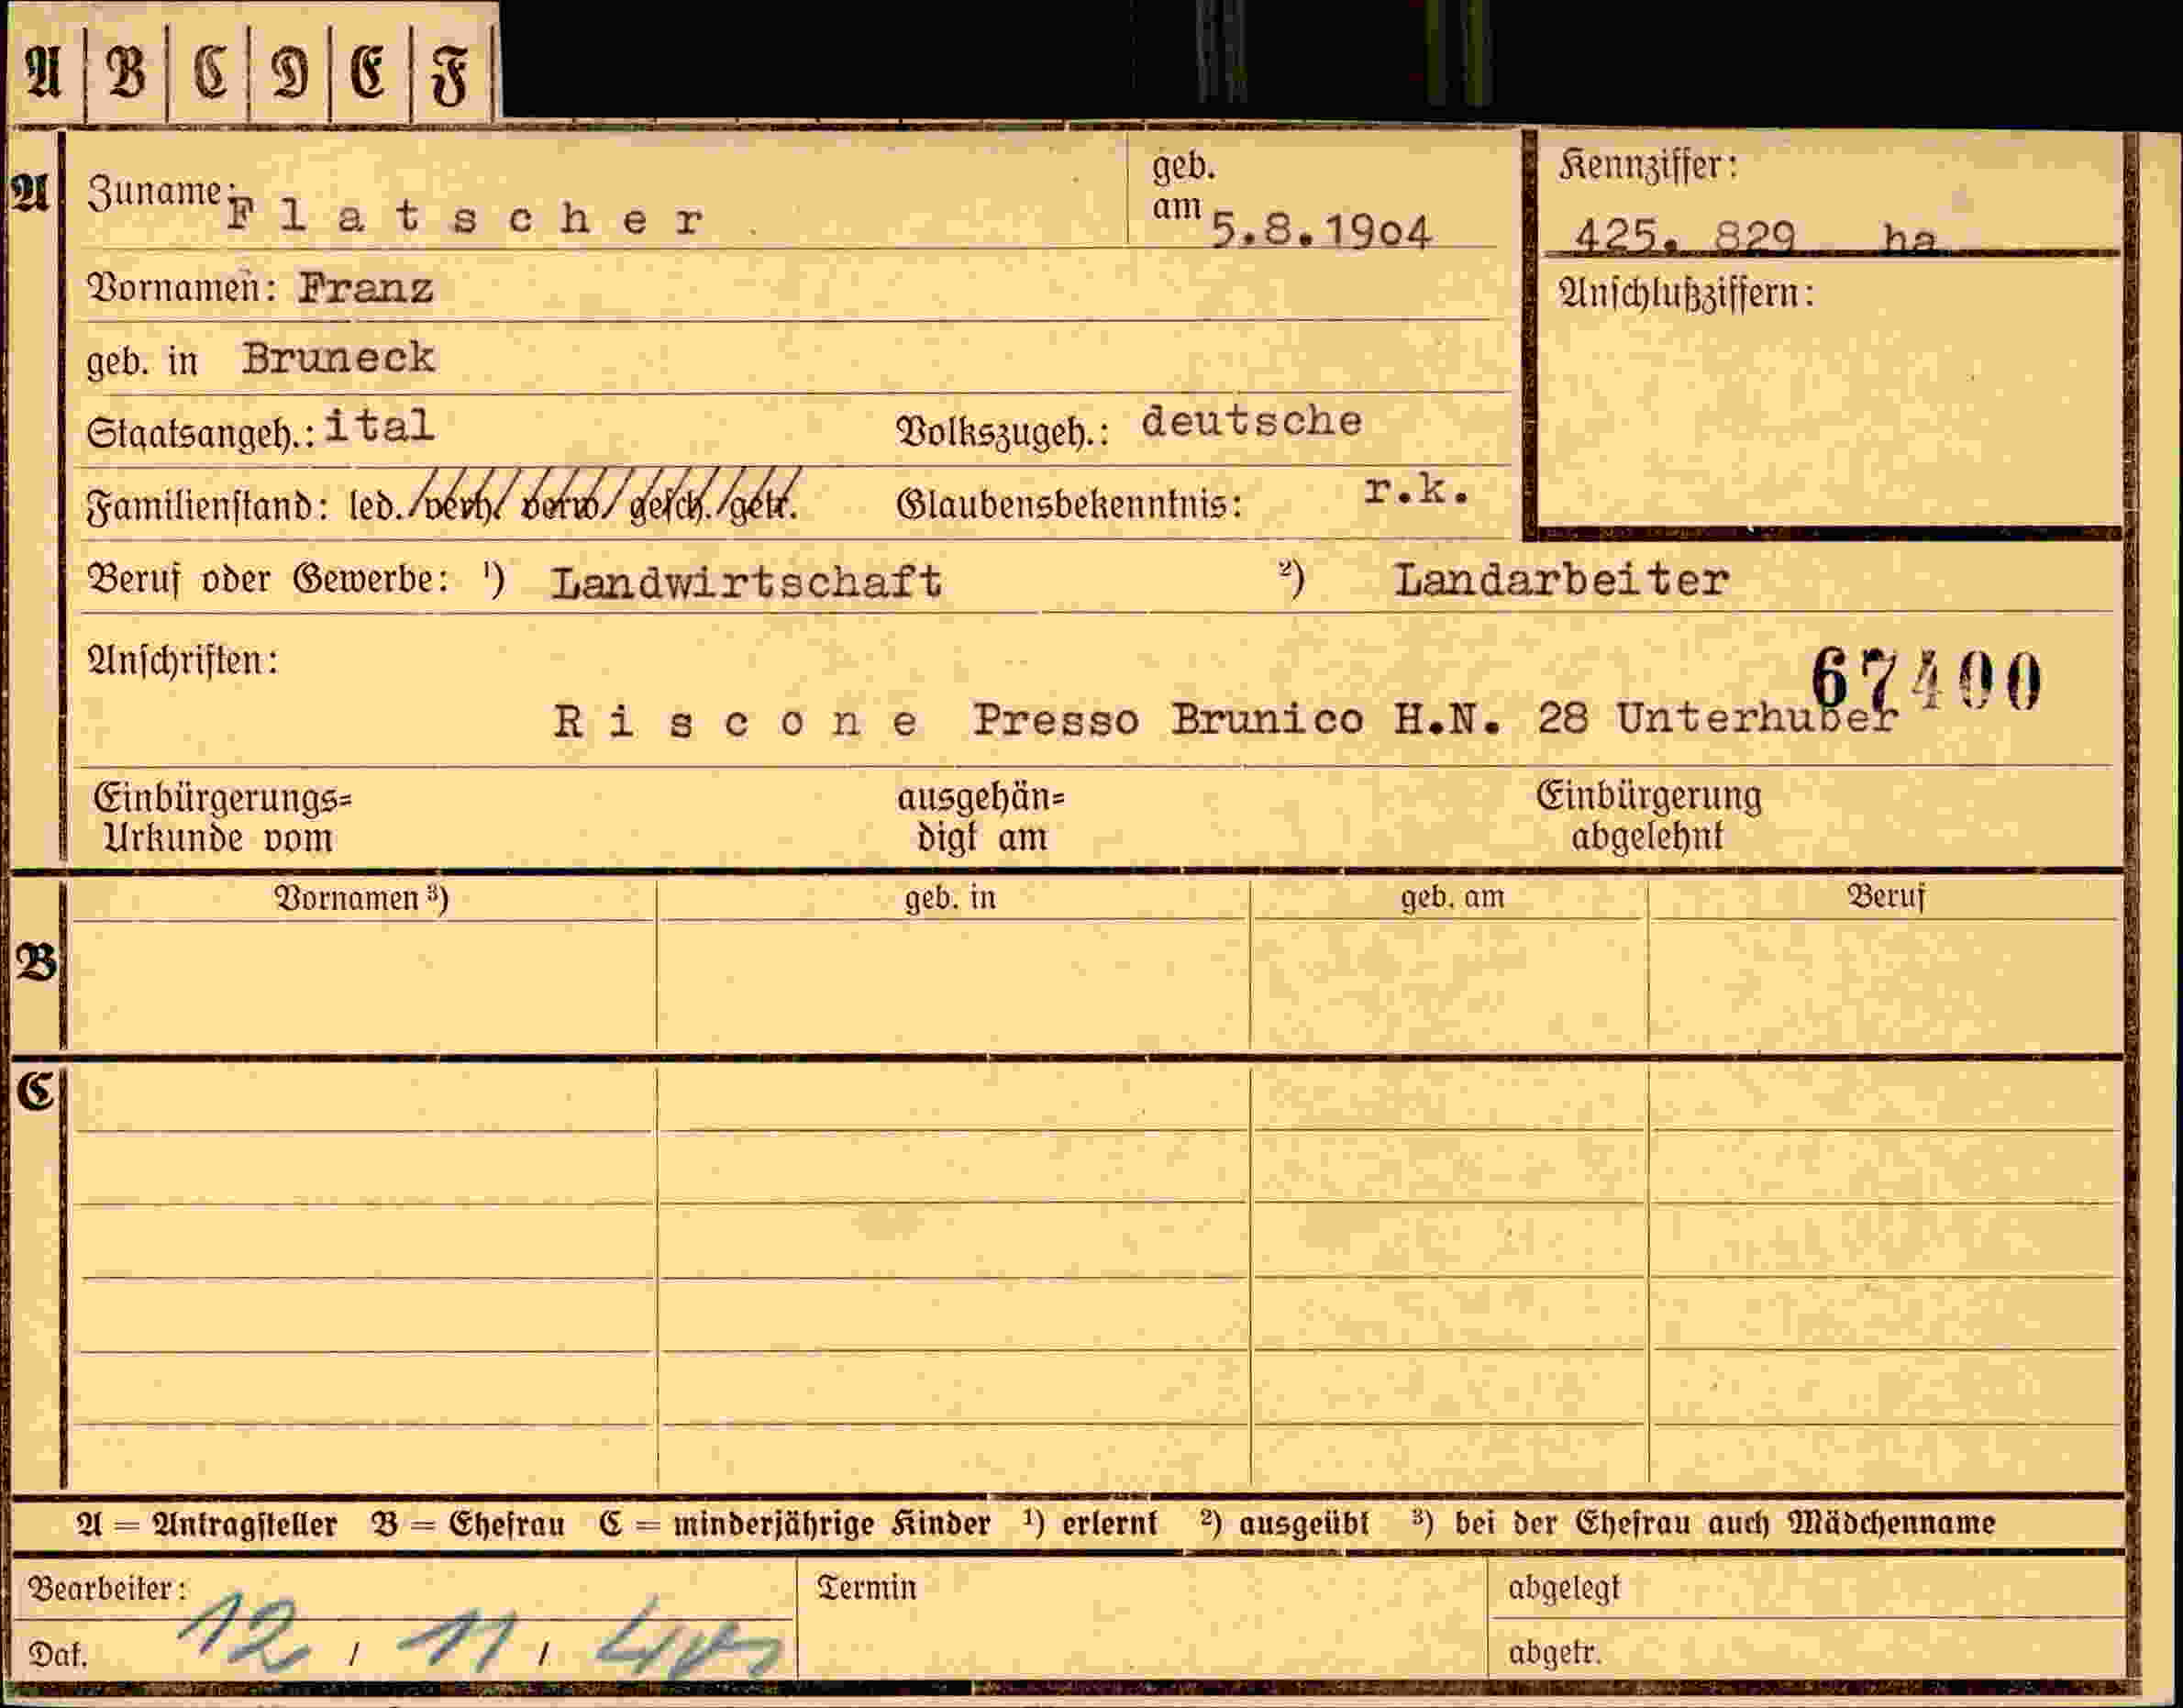 A B C D E F
A Zuname: Flatscher geb. am 5.8.1904 Kennziffer:
425. 829 ha
Vornamen: Franz Anschlußziffern:
geb. in Bruneck
Staatsangeh.: ital Volkszugeh.: deutsche
Familienstand: led./verh/ verw/ gesch./getr. Glaubensbekenntnis: r.k.
Beruf oder Gewerbe: ¹) Landwirtschaft ²) Landarbeiter
Anschriften: 67400
Riscone Presso Brunico H.N. 28 Unterhuber
Einbürgerungs= ausgehän= Einbürgerung
Urkunde vom digt am abgelehnt
Vornamen ³) geb. in geb. am Beruf
B
C
A = Antragsteller B = Ehefrau C = minderjährige Kinder ¹) erlernt ²) ausgeübt ³) bei der Ehefrau auch Mädchenname
Bearbeiter: Termin abgelegt
Dat. 12 / 11 / abgetr.